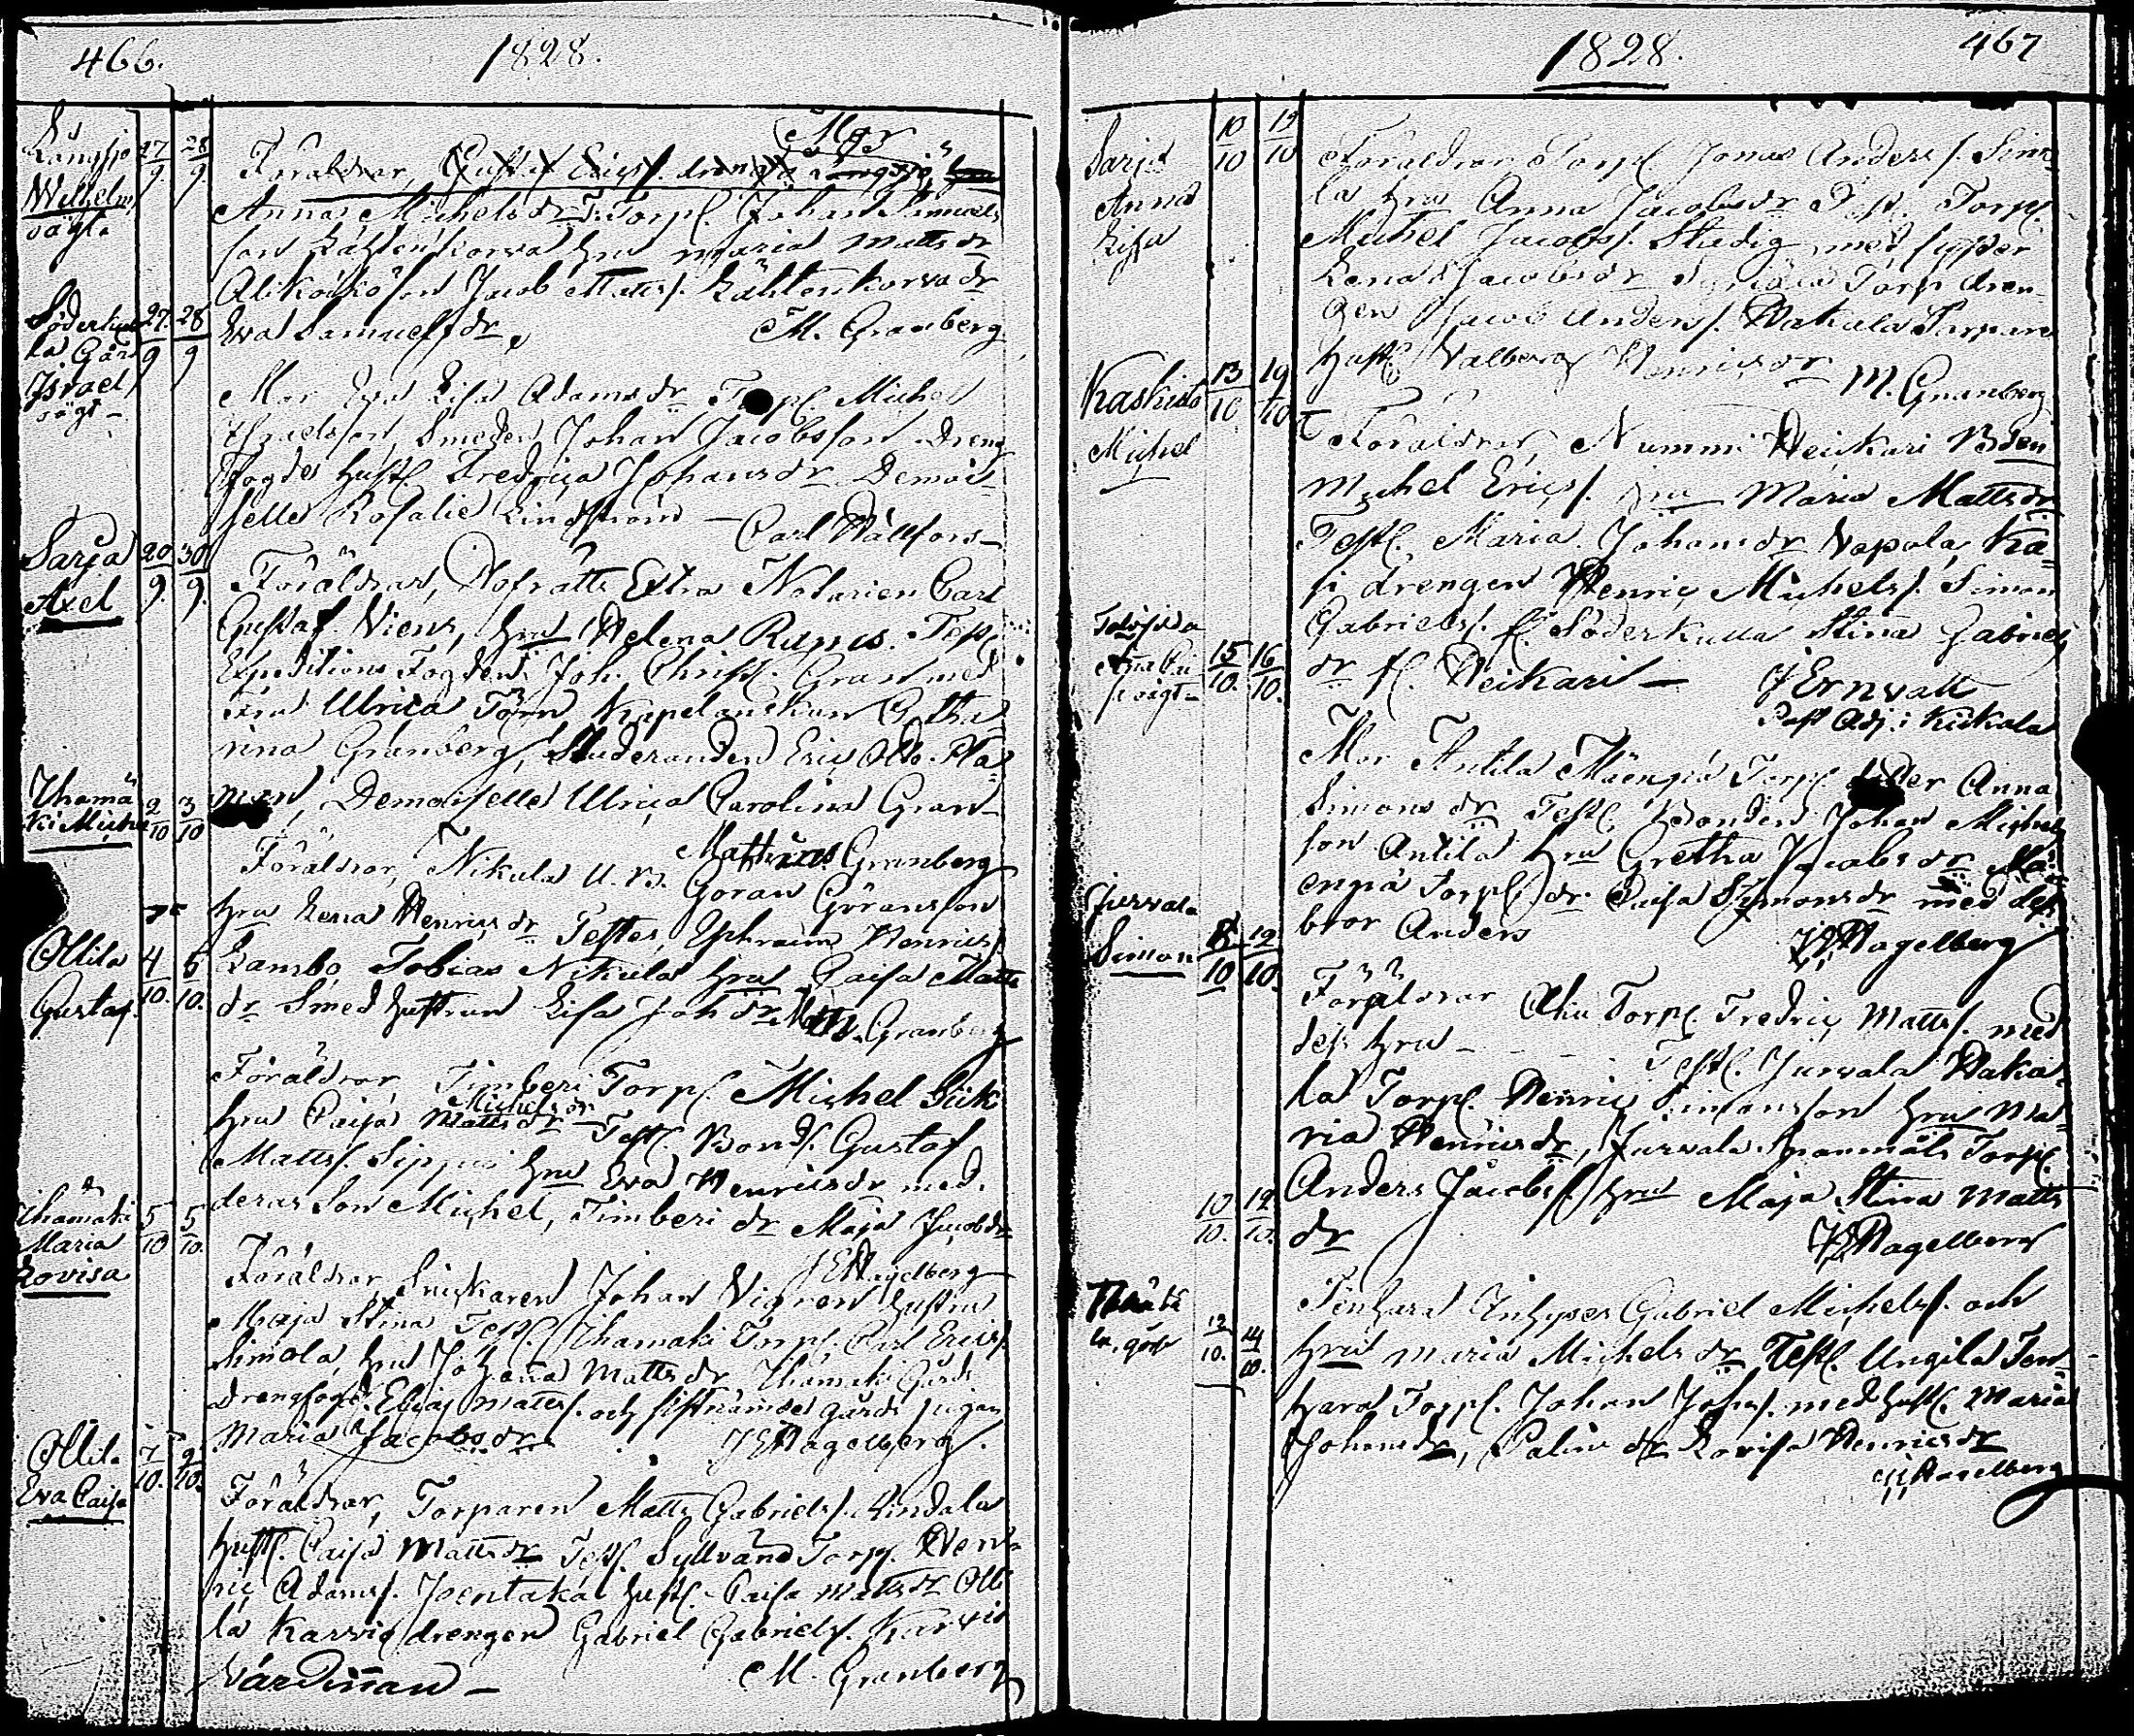 466.
1828.
Långsjö
Wilhelm
oägt.
27/9. 28/9.
Mor
Föräldrar, Gustaf Ericss. dräng Långsjö, hru
Anna Michelsdr T. Torp. Johan Samuels
son Lähtenkorva hru Maria Mattsdr
son Jacob Mattss. Lähtenkorva dr
Eva Samuelsdr, M. Granberg
Söderkul
la Gård
Israel
oägt
27/9 28/9
Mor Eva Lisa Adamsdr Torp. Michel
Israelsson, Smeden Johan Jacobsson Dreng
Fogdes hust. Fredrica Johansdr Demoi
selle Rosalie Lindström — Carl Wallfors
Sarja
Axel
20/9. 30/9.
Föräldrar, Hofrätts Extra Notarien Carl
Gustaf Viens, hru Helena Test.
Expeditions Fogden Joh. Christ. Gran med
fru Ulrica Törn Kapelanskan Catha
rina Granberg, Studeranden Eric
man, Demoiselle Ulrica Carolina Gran
Matthias Granberg
Yhamä
ki Michel
2/10 3/10
Föräldrar, Nikula U. B. Göran Göransson
hru Lena Henricsdr Testes, Ephraim Henricss
Lambo, Tobias Nikula hru Caisa Matts
dr Smed hustrun Lisa Joh dr M. Granberg
Ollila
Gustaf.
4/10. 5/10.
Föräldrar, Timberi Torp. Michel
Michelsdr
hru Caisa Mattsdr — Test. Bond. Gustaf
Mattss. Sippu hru Eva Henricsdr med
deras Son Michel, Timberi dr Maja Jacobsdr
J E Hagelberg
Yhamäki
Maria
Lovisa
5/10 5/10.
Föräldrar, Snickaren Johan Vigren hustru
Maja Stina Test. Yhamäki Torp. Carl Ericss.
Simola, hru Johanna Mattsdr Yhamäki Gårds
drengfogd. Elias Mattss. och sistnämde gårds pigan
Maria Jacobsdr J E Hagelberg.
Ollila
Eva Caisa
7/10. 9/10.
Föräldrar, Torparen Matts Gabrielss. Rindala
hust. Caisa Mattsdr Test. Syllvänä Torp. Hen
ric Adamss. Isentaka hust. Caisa Mattsdr Olli
la Karvis drengen Gabriel Gabrielss. Karvis
Värdinnan — M. Granberg
1828.
467
Sarja
Anna
Lisa
10/10 19/10
Föräldrar, Torp. Jonas Anderss. Simo
la hru Anna Jacobsdr Test. Torp.
Michel Jacobss. Studig med syster
Lena Jacobsdr Torp dren
gen Jacob Anderss. Wakala Torpare
hust. Valborg Henricsdr M. Granberg
Kaskisto
Michel
13/10 19/10
Föräldrar, Nummi Heikari Bden
Michel Ericss. hru Maria Mattsdr
Test. Maria Johansdr Vapala, Ka
si drengen Henric Michelss. Simon
Gabrielss. fr Söderkulla Stina Gabriels
dr f. Heikari — J Ernvall
Past Adj: i Kiikala
oägt
15/10. 16/10.
Mor Antila Mäenpä Torp. dotter Anna
Simonsdr Test. Bonden Johan Michels
son Antila hru Gretha Jacobsdr Mä
enpä Torp. dr Caisa Simonsdr med des
bror Anders J E Hagelberg
Jurvala
Simon
10/10 12/10.
Föräldrar Torp. Fredric Mattss. med
des hru — Test. Jurvala Waka
la Torp. Henric Simonsson hru Ma
ria Henricsdr, Jurvala Torp.
Anders Jacobss. hru Maja Stina Matts
dr J E Hagelberg
10/10. 12/10.
12/10. 14/10.
Tenhara Inhyses Gabriel Michelss. och
hru Maria Michelsdr, Test. Ungila Ten
hara Torp. Johan Johss. med hust. Maria
Johansdr, Palin dr Lovisa Henricsdr
J E Hagelberg